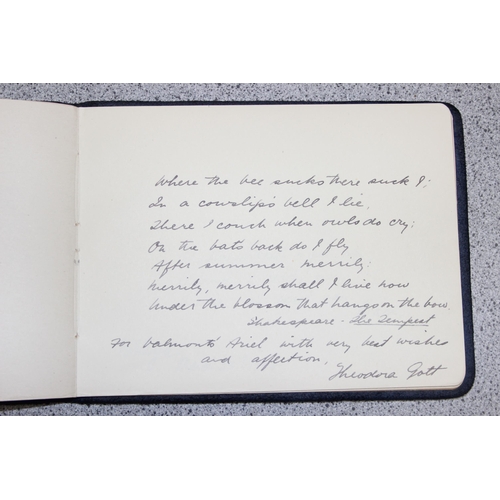 Where the bee sucks there suck I;
In a cowslip's bell I lie,
There I couch when owls do cry:
On the bats back do I fly
After summer merrily:
Merrily, merrily shall I live now
Under the blossom that hangs on the bow.
Shakespeare - The Tempest
For Valmonts Ariel with very best wishes
and affection,
Theodora Gott